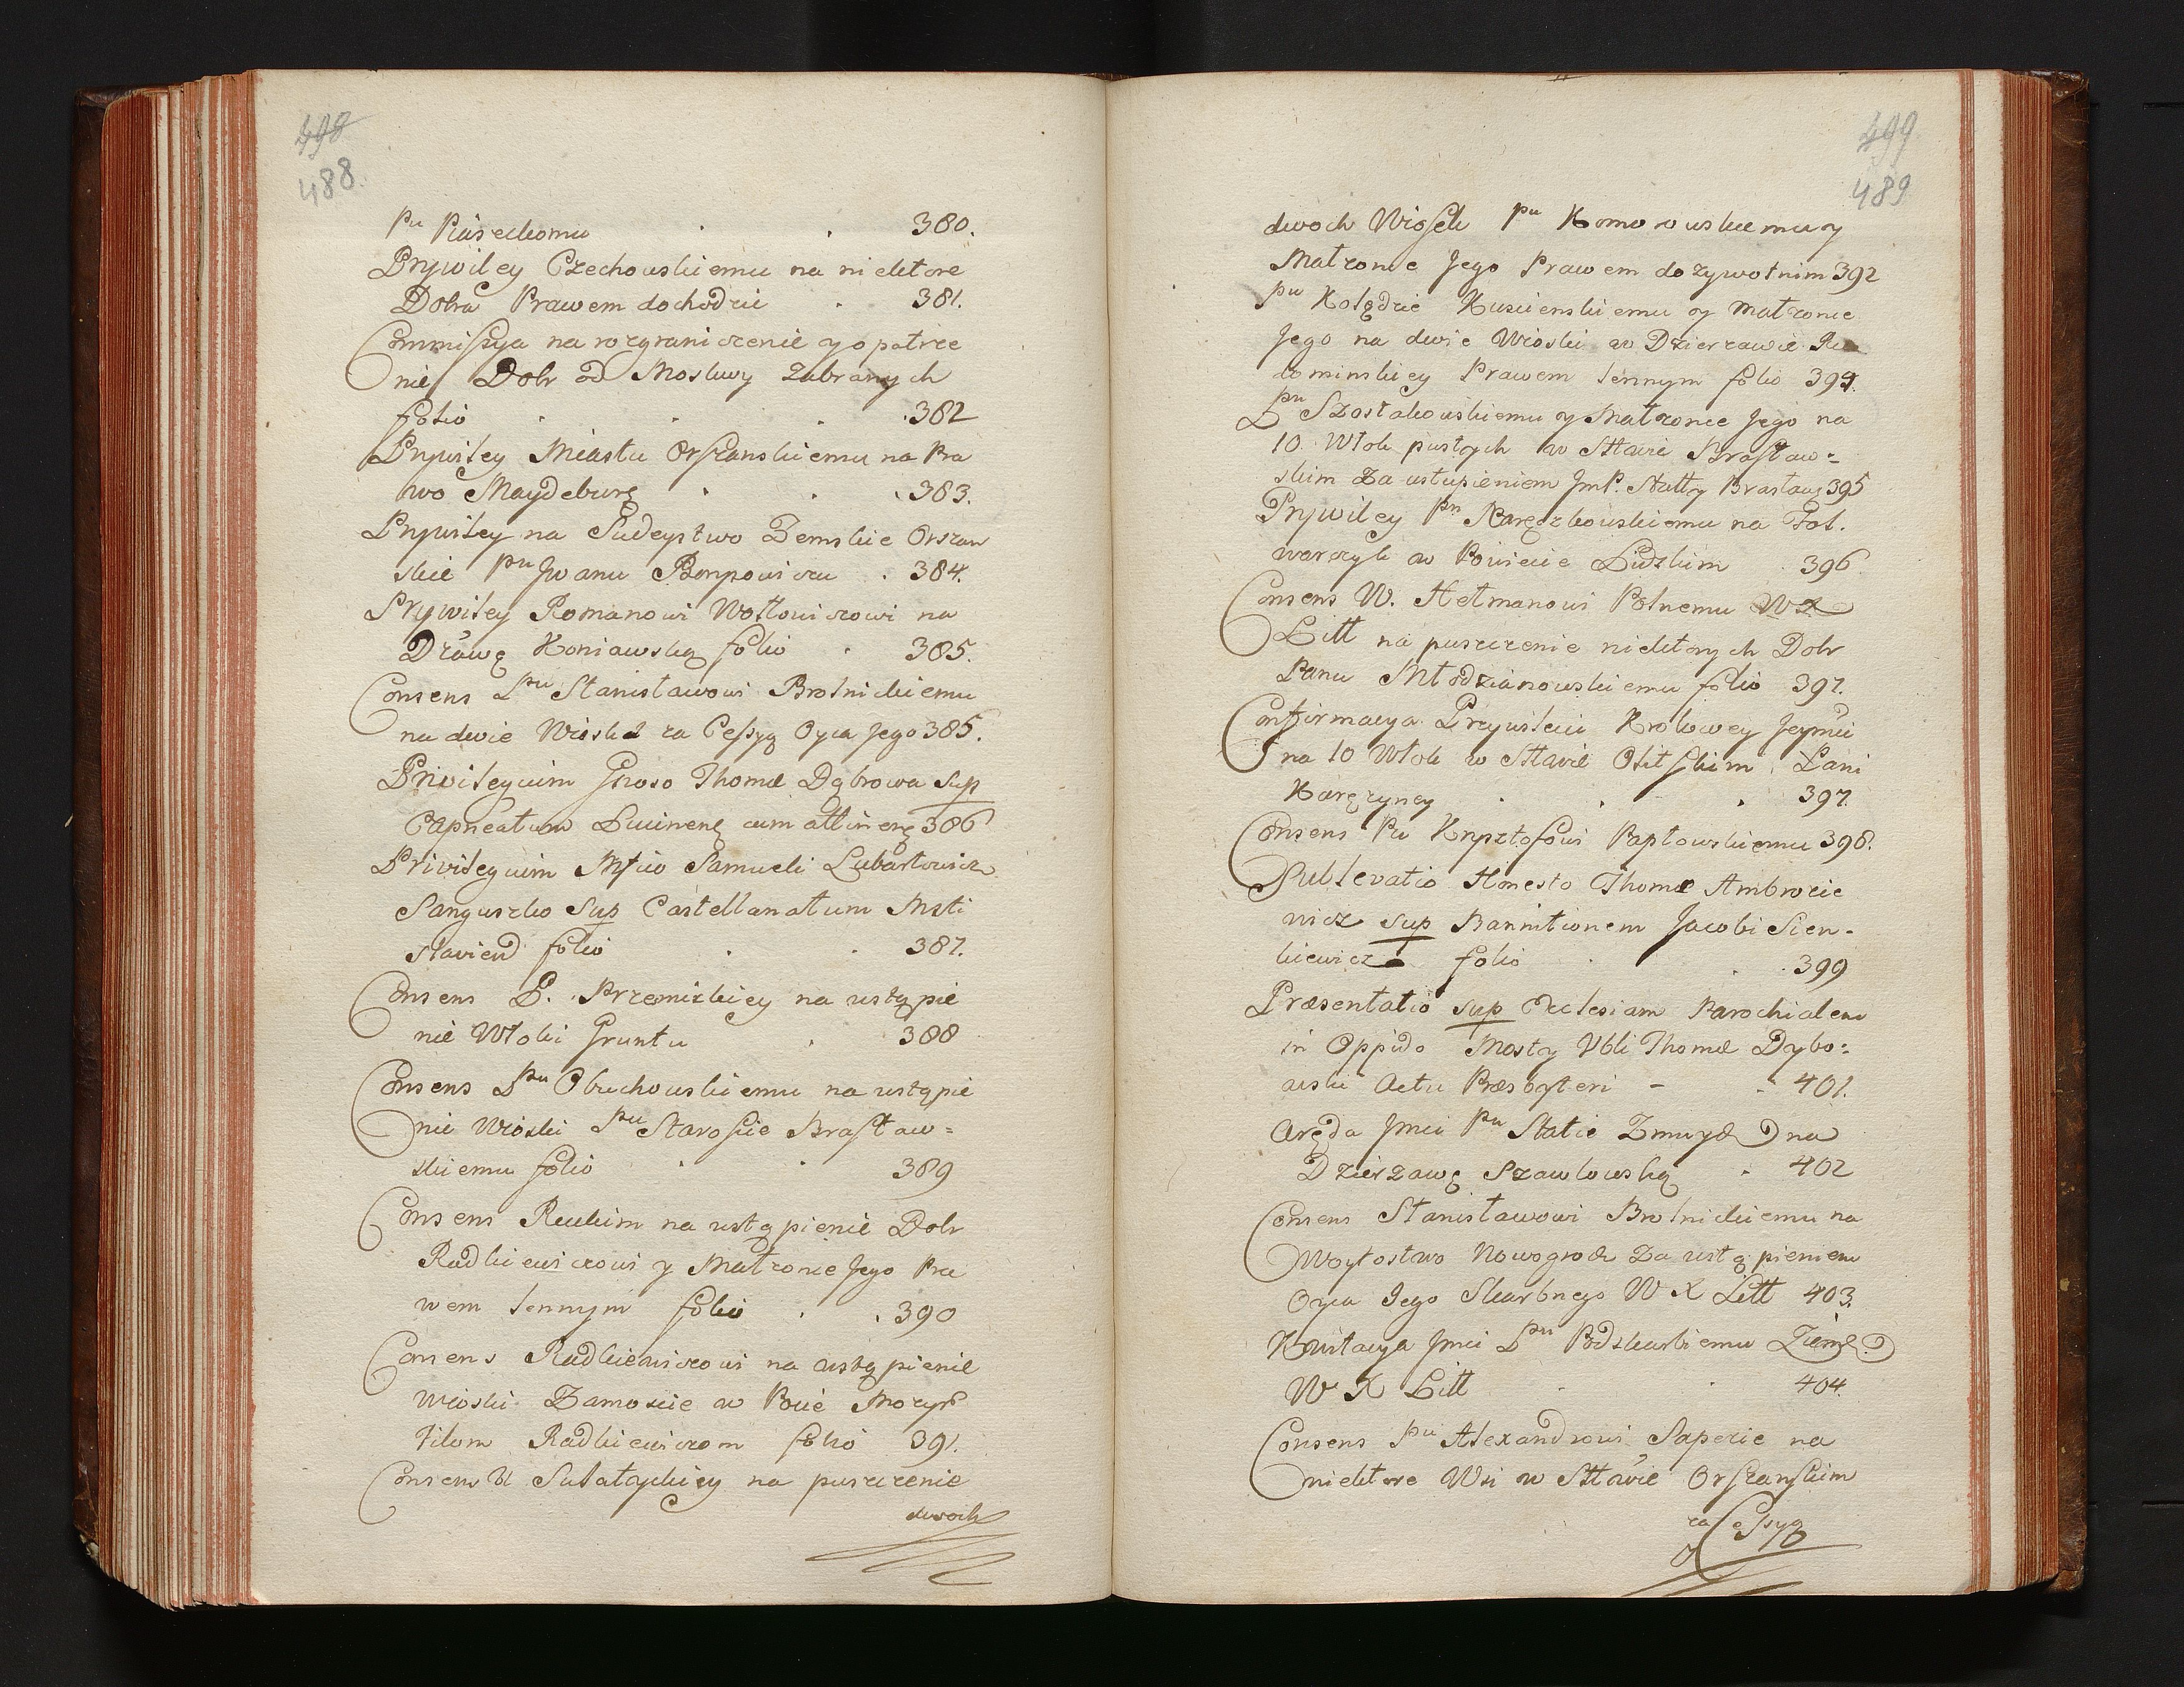 498
488.
Pu Piaseckomu . . 380.
Prywiley Czechowskiemu na niektore
Dobra Prawem dochodzic . 381.
Commissya na rozgraniczenie y opatrze
nie Dobr od Moskwy zabranych
folio . . . 382
Prywiley Miastu Orszanskiemu na Pra
wo Maydeburg . . 383.
Prywiley na Sudeystwo Zemskie Orszan
skie Pu Jwanu . 384.
Prywiley Romanowi Wołłowiczowi na
Drawę Koniawską folio . 385.
Consens Pu Stanisławowi Brolnickiemu
na dwie Wioski za Cessyą Oyca Jego 385.
Privilegium Gnoso Thomæ Dąbrowa sup
Capneatum cum attineñ 386
Privilegium Mfico Samueli Lubartowicz
Sanguszko Sup Castellanatum Msti
slavien folio . . 387.
Consens P. Przemickiey na ustąpie
nie Włoki Gruntu . 388
Consens Pu Obuchowskiemu na ustąpie
nie Wioski Pu Staroscie Brasław=
skiemu folio . . 389
Consens na ustąpienie Dobr
Radkiewiczowi y Małzonce Jego Pra
wem lennym folio . . 390
Consens Radkiewiczowi na ustąpienie
Wioski Zamoscie w Powie Mozyr
filom Radkiewiczom folio 391.
Consens U na puszczenie
dwoch
499
489
dwoch Wiosek Pu Komorowskiemu y
Małzonce Jego Prawem dozywotnim 392
Pu Kolędzie y Małzonce
Jego na dwie Wioski w Dzierzawie Ra
dominskiey Prawem lennym folio 394.
Pu Szostakowskiemu y Małzonce Jego na
10 Włok pustych w Sttwie Brasław=
skim Za ustąpieniem JmP. Brasławs 395
Prywiley Pu Karęczkowskiemu na Fol.
warczyk w Powiecie Lidzkim . 396
Consens W. Hetmanowi Polnemu WX
Litt na puszczenie niektorych Dobr
Panu Młodzianowskiemu folio 397.
Confirmacya Przywileiu Krolowey Jeymci
na 10 Włok w Sttwie Olitskim Pani
Karęzyney . . . 397.
Consens Pu Krysztofowi Papłowskiemu 398.
Sublevatio Honesto Thomæ Ambrozie
wicz sup Bannitionem Jacobi Sien-
kiewicz folio . . 399
Præsentatio sup Ecclesiam Parochialem
in Oppido Mosty Vbli Thomæ Dybo=
wski Actu Præsbyteri - - 401.
Aręda Jmci Pu Statie Zmuydz na
Dzierzawę Szawlowską . 402
Consens Stanisławowi Brolnickiemu na
Woytostwo Nowogrodz Za ustąpieniem
Oyca Jego Skarbnego W X Litt 403.
Kwitacya Jmci Pu Podskarbiemu Ziems.
W X Litt . . 404.
Consens Pu Alexandrowi Sapezie na
niektore Wsi w Sttwie Orszanskim
za Cessyą